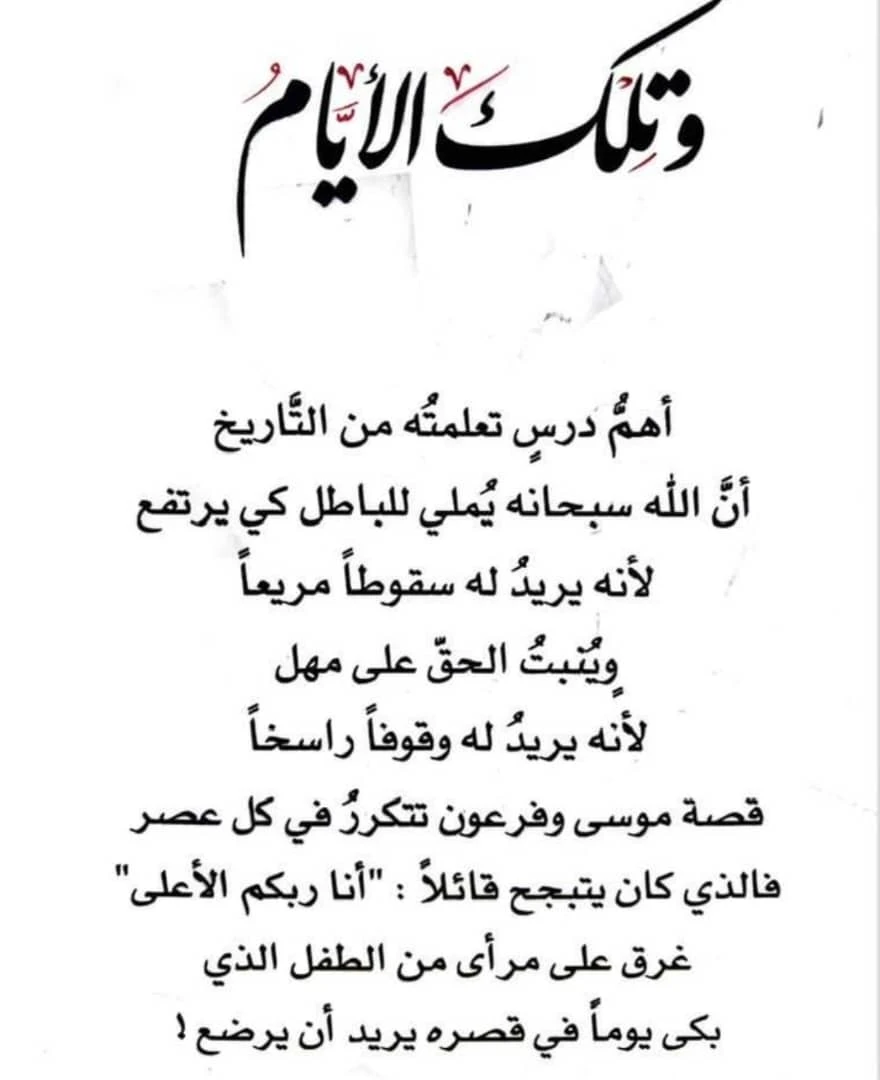 وَتِلْكَ الأيَّامُ
أهمُّ درسٍ تعلمتُه من التَّاريخ
أنَّ الله سبحانه يُملي للباطل كي يرتفع
لأنه يريدُ له سقوطاً مريعاً
ويُنبتُ الحقّ على مهل
لأنه يريدُ له وقوفاً راسخاً
قصة موسى وفرعون تتكررُ في كل عصر
فالذي كان يتبجح قائلاً : "أنا ربكم الأعلى"
غرق على مرأى من الطفل الذي
بكى يوماً في قصره يريد أن يرضع !